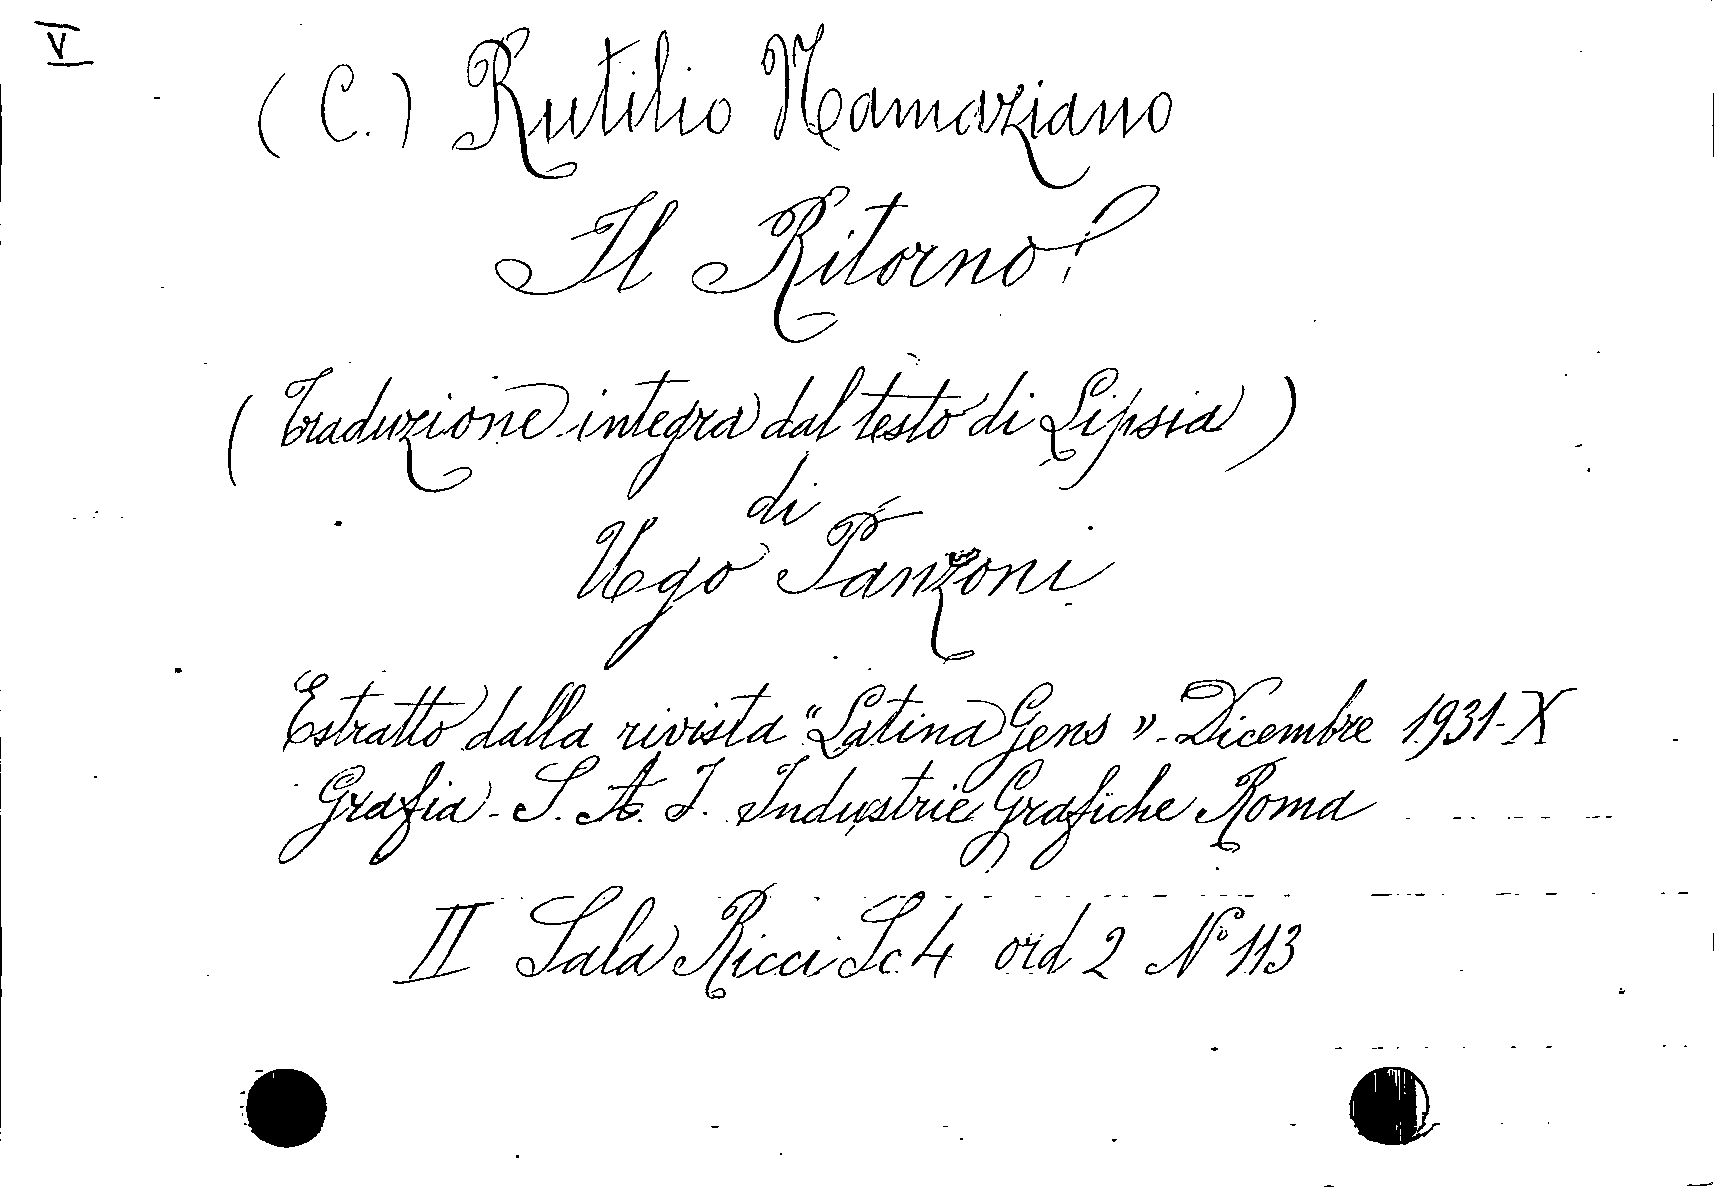 V
(C.) Rutilio Namaziano
Il Ritorno!
(Traduzione integra dal testo di Lipsia)
di
Ugo Panzoni
Estratto dalla rivista "Latina Gens" - Dicembre 1931-X
Grafia - S. A. I. Industrie Grafiche Roma
II Sala Ricci Sc 4 ord 2 N° 113